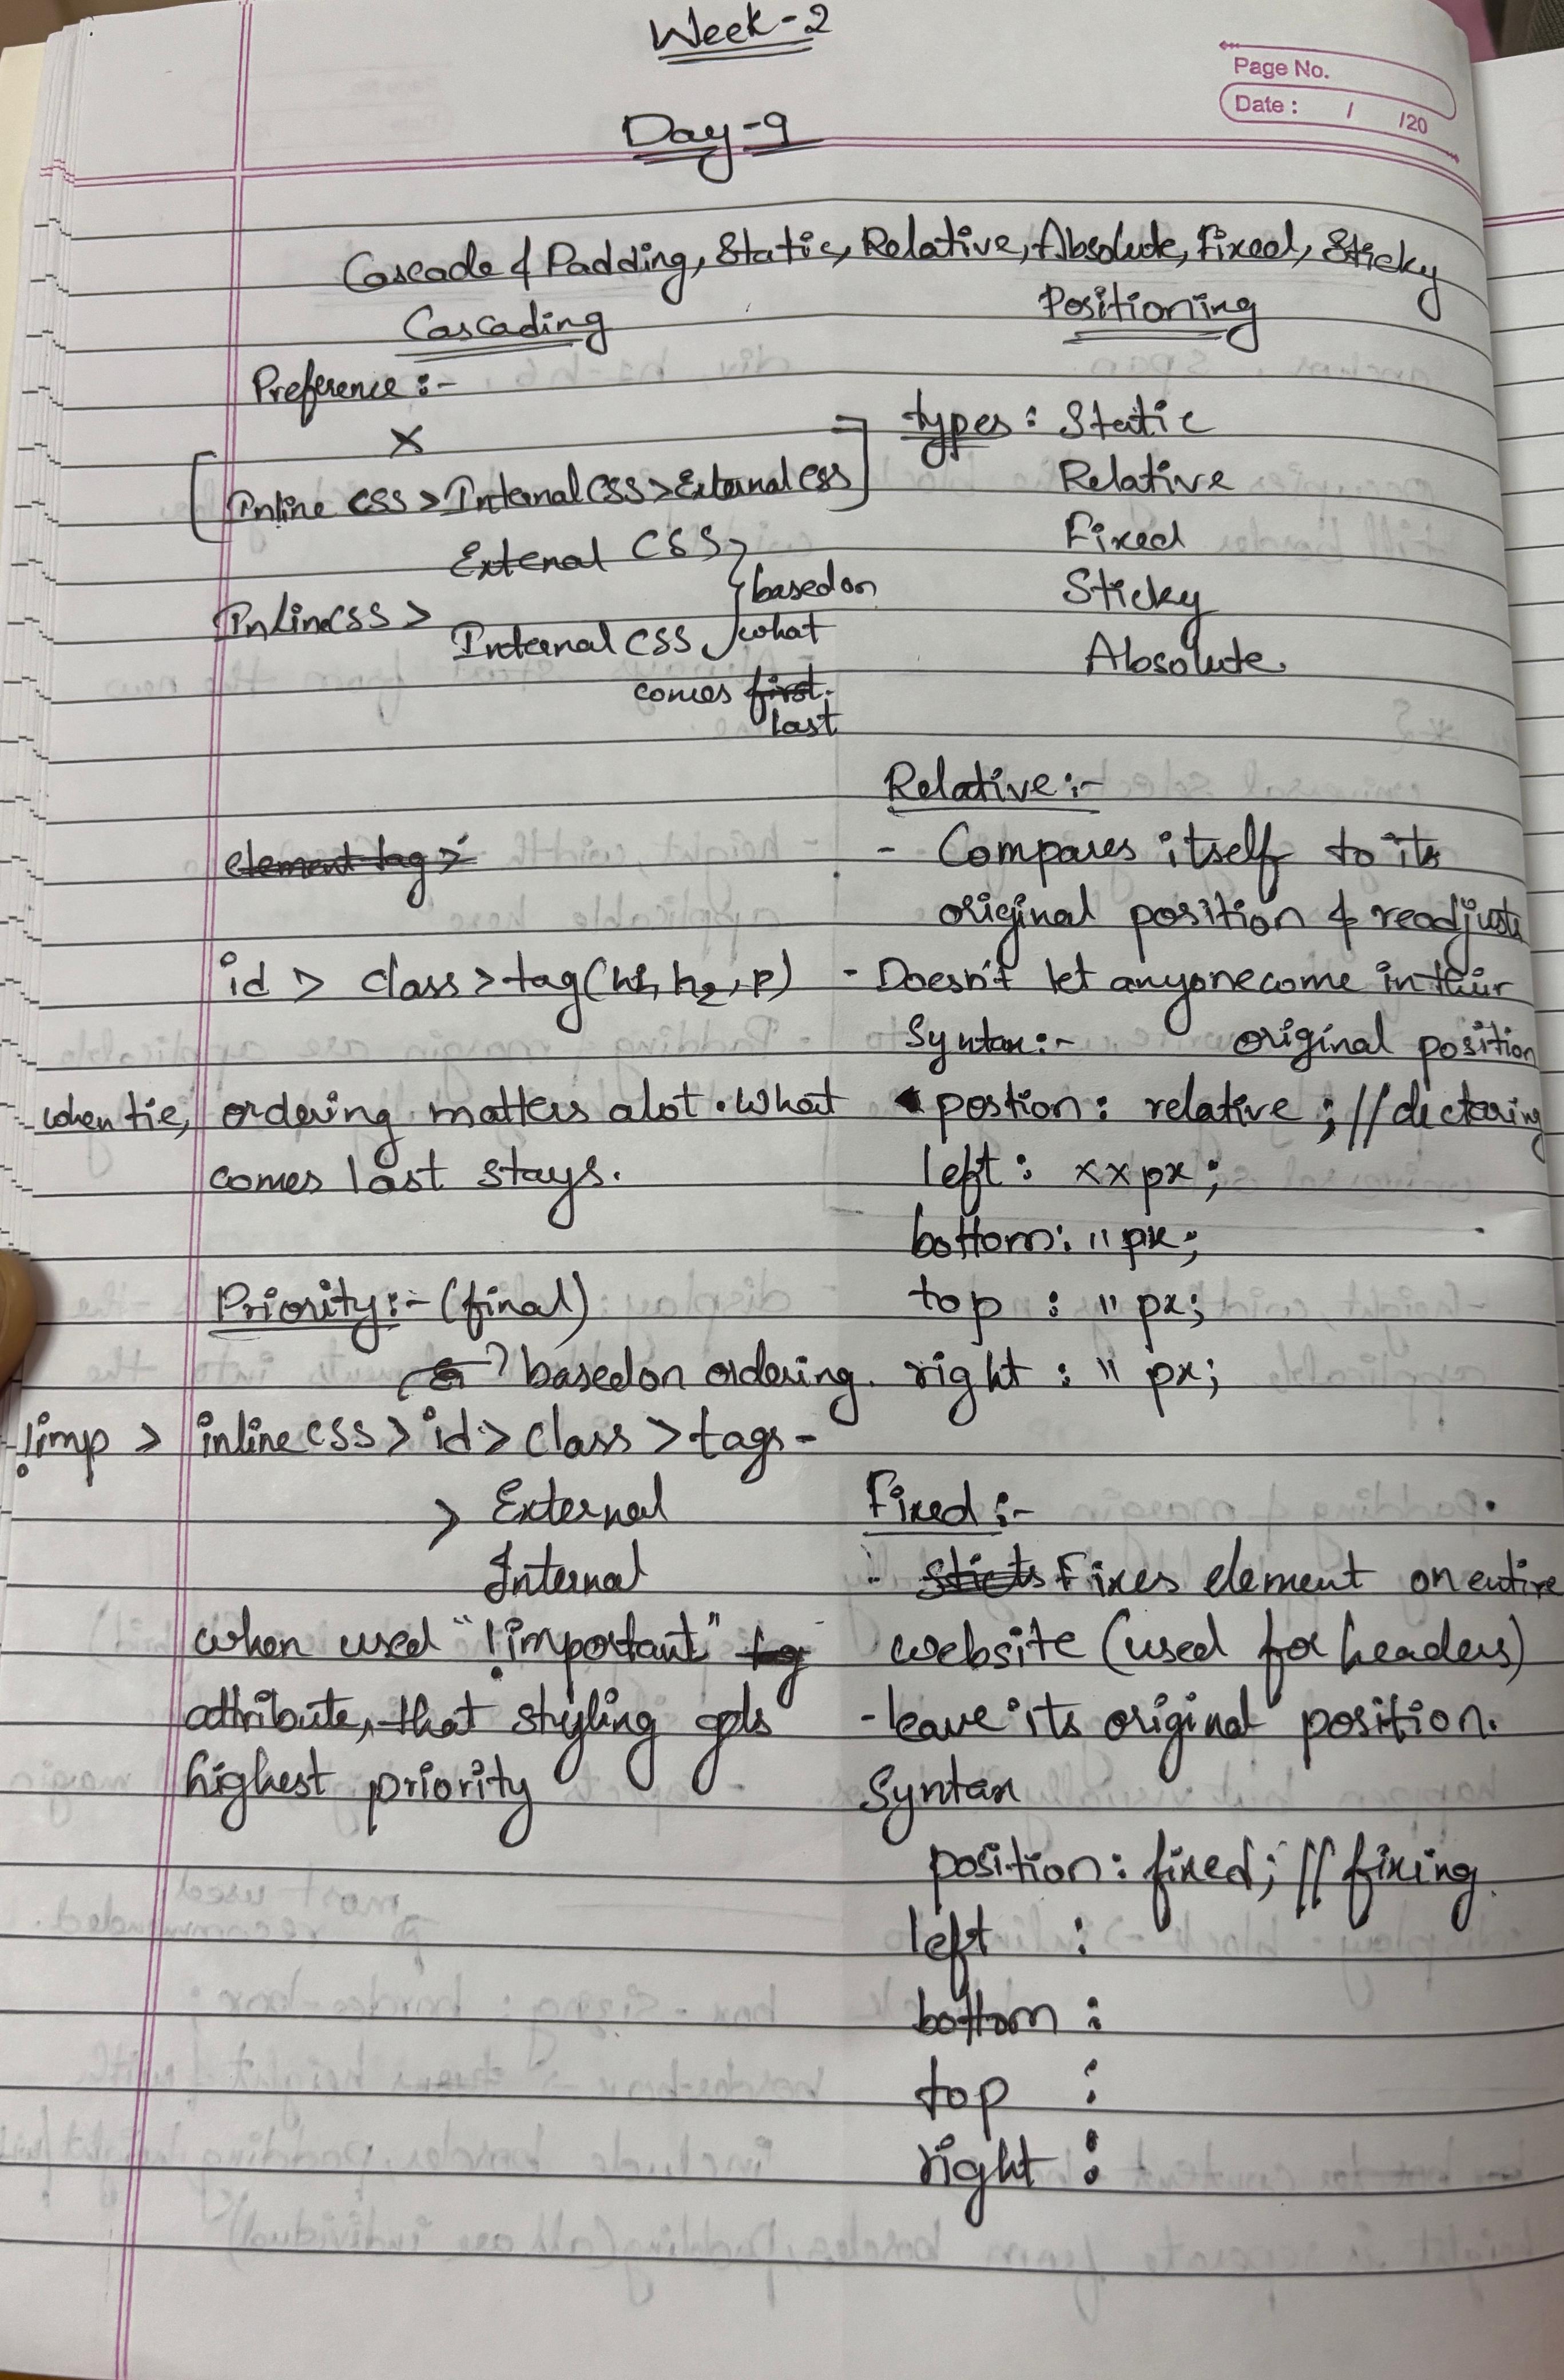 Week-2
Page No.
Date : / /20
Day-9
Cascade & Padding, Static, Relative, Absolute, Fixed, Sticky
Cascading
Preference :-
X
[Inline CSS > Internal CSS > External CSS]
External CSS
InlineCSS > } based on
Internal CSS what
comes first.
last
element tag >
id > class > tag(h1, h2, p)
when tie, ordering matters alot. What
comes last stays.
Priority :- (final)
based on ordering.
!imp > inline CSS > id > class > tags -
> External
Internal
when used "!important" tag
attribute, that styling gets
highest priority
Positioning
types : Static
Relative
Fixed
Sticky
Absolute
Relative :-
- Compares itself to its
original position & readjusts
- Doesn't let anyone come in their
original position
Syntax :-
postion : relative ; // declaring
left : xx px ;
bottom : " px ;
top : " px ;
right : " px ;
Fixed :-
Fixes element on entire
website (used for headers)
- leave its original position.
Syntax
position : fixed ; // fixing.
left :
bottom :
top :
right :